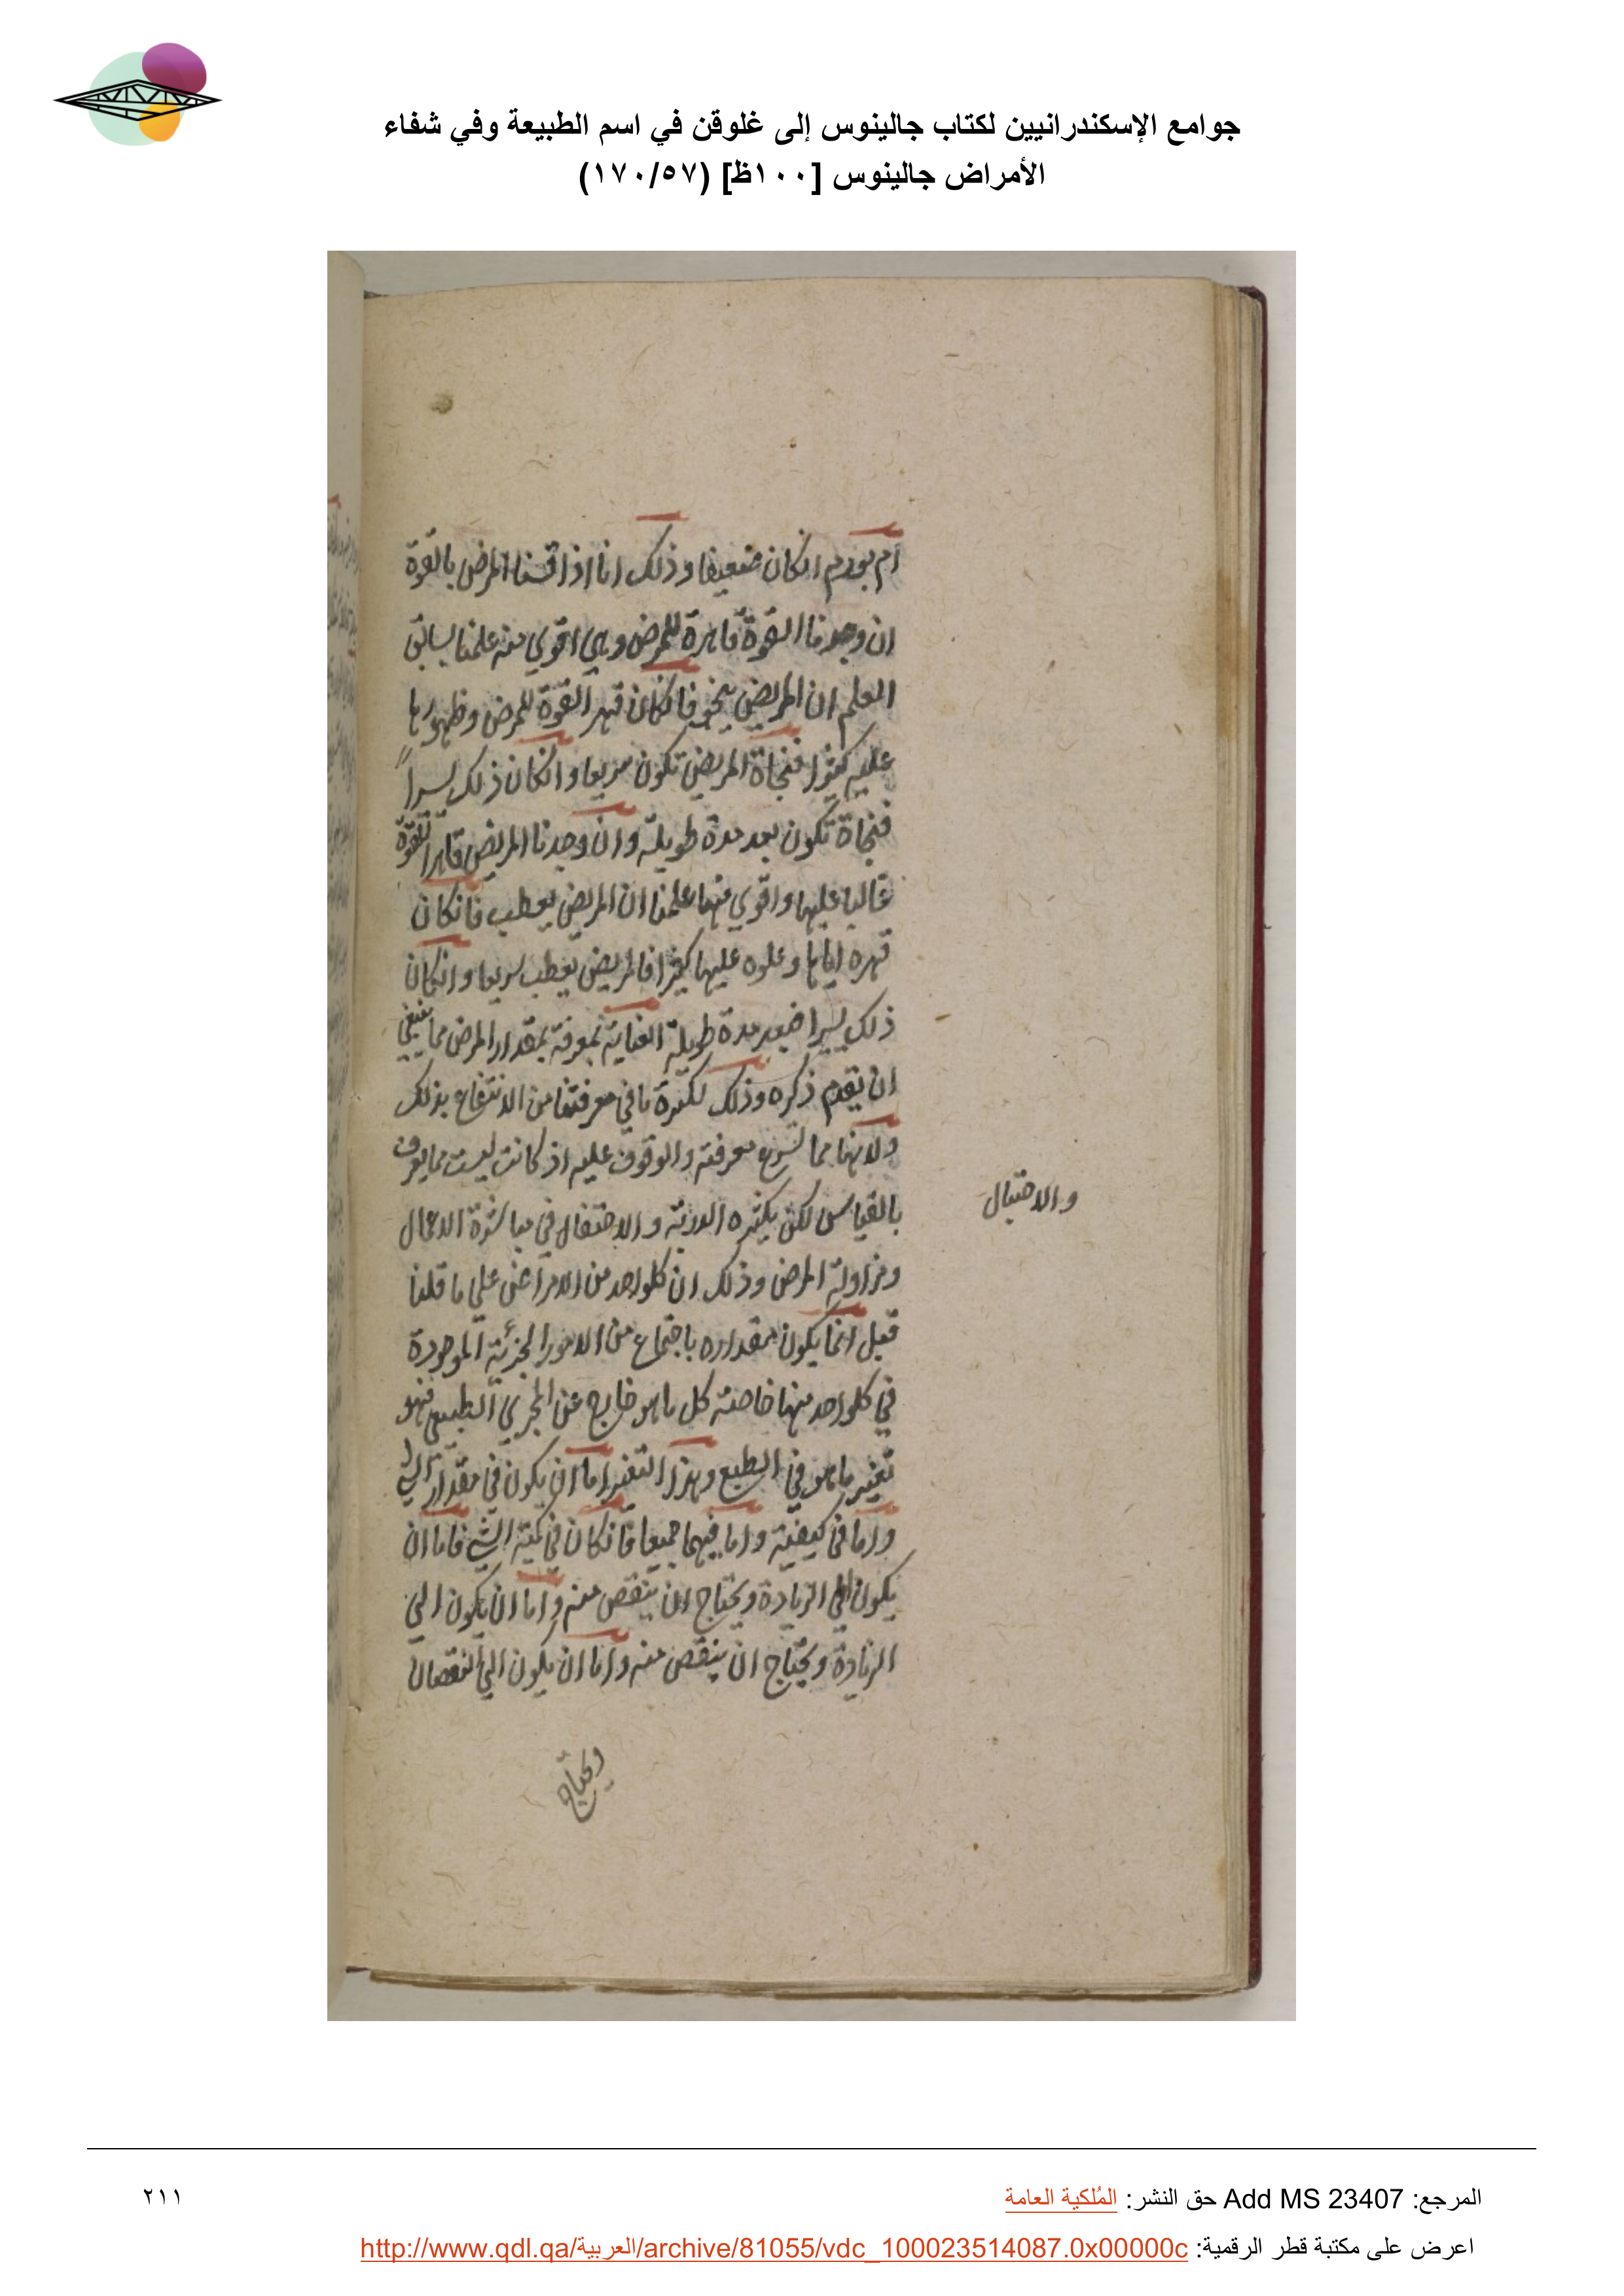 جوامع الإسكندرانيين لكتاب جالينوس إلى غلوقن في اسم الطبيعة وفي شفاء
الأمراض جالينوس [١٠٠ظ] (١٧٠/٥٧)
ام بورم انكان ضعيفا وذلك انا اذا قسنا المرض بالقوة
ان وجدنا القوة قاهرة للمرض وهي اقوي منه علمنا بسابق
العلم ان المريض ينجو فانكان قهر القوة للمرض وظهورها
عليه كثيرا فنجاة المريض تكون سريعا وانكان ذلك يسيراً
فنجاة تكون بعد مدة طويلة وان وجدنا المريض قاهرا للقوة
غالبا عليها واقوي منها علمنا ان المريض يعطب فانكان
قهره اياها وعلوه عليها كثيرا فالمريض يعطب سريعا وانكان
ذلك يسيرا فبعد مدة طويلة العناية بمعرفة بمقدار المرض مما ينبغي
ان نقدم ذكره وذلك لكثرة ما في معرفتنا من الانتفاع بذلك
ولانها مما معرفته والوقوف عليه اذ كانت ليست مما يعرف
بالقياس لكن بكثره الدربة والاحتفال في مباشرة الاعمال
والاحتيال
ومزاولة المرض وذلك ان كلواحد من الامراض علي ما قلنا
قبل انما يكون مقداره باجتماع من الامور الجزئية الموجودة
في كلواحد منها خاصته كل ما هو خارج عن المجري الطبيعي فهو
تغير ما هو في الطبع وهذا التغير اما ان يكون في مقدار الشي
واما في كيفيته واما فيهما جميعا فانكان في كمية الشي فاما ان
يكون الي الزيادة ويحتاج ان ينقص منه واما ان يكون الي
الزيادة ويحتاج ان ينقص منه واما ان يكون الي النقصان
ويحتاج
المرجع: Add MS 23407 حق النشر: المُلكية العامة
٢١١
اعرض على مكتبة قطر الرقمية: http://www.qdl.qa/العربية/archive/81055/vdc_100023514087.0x00000c